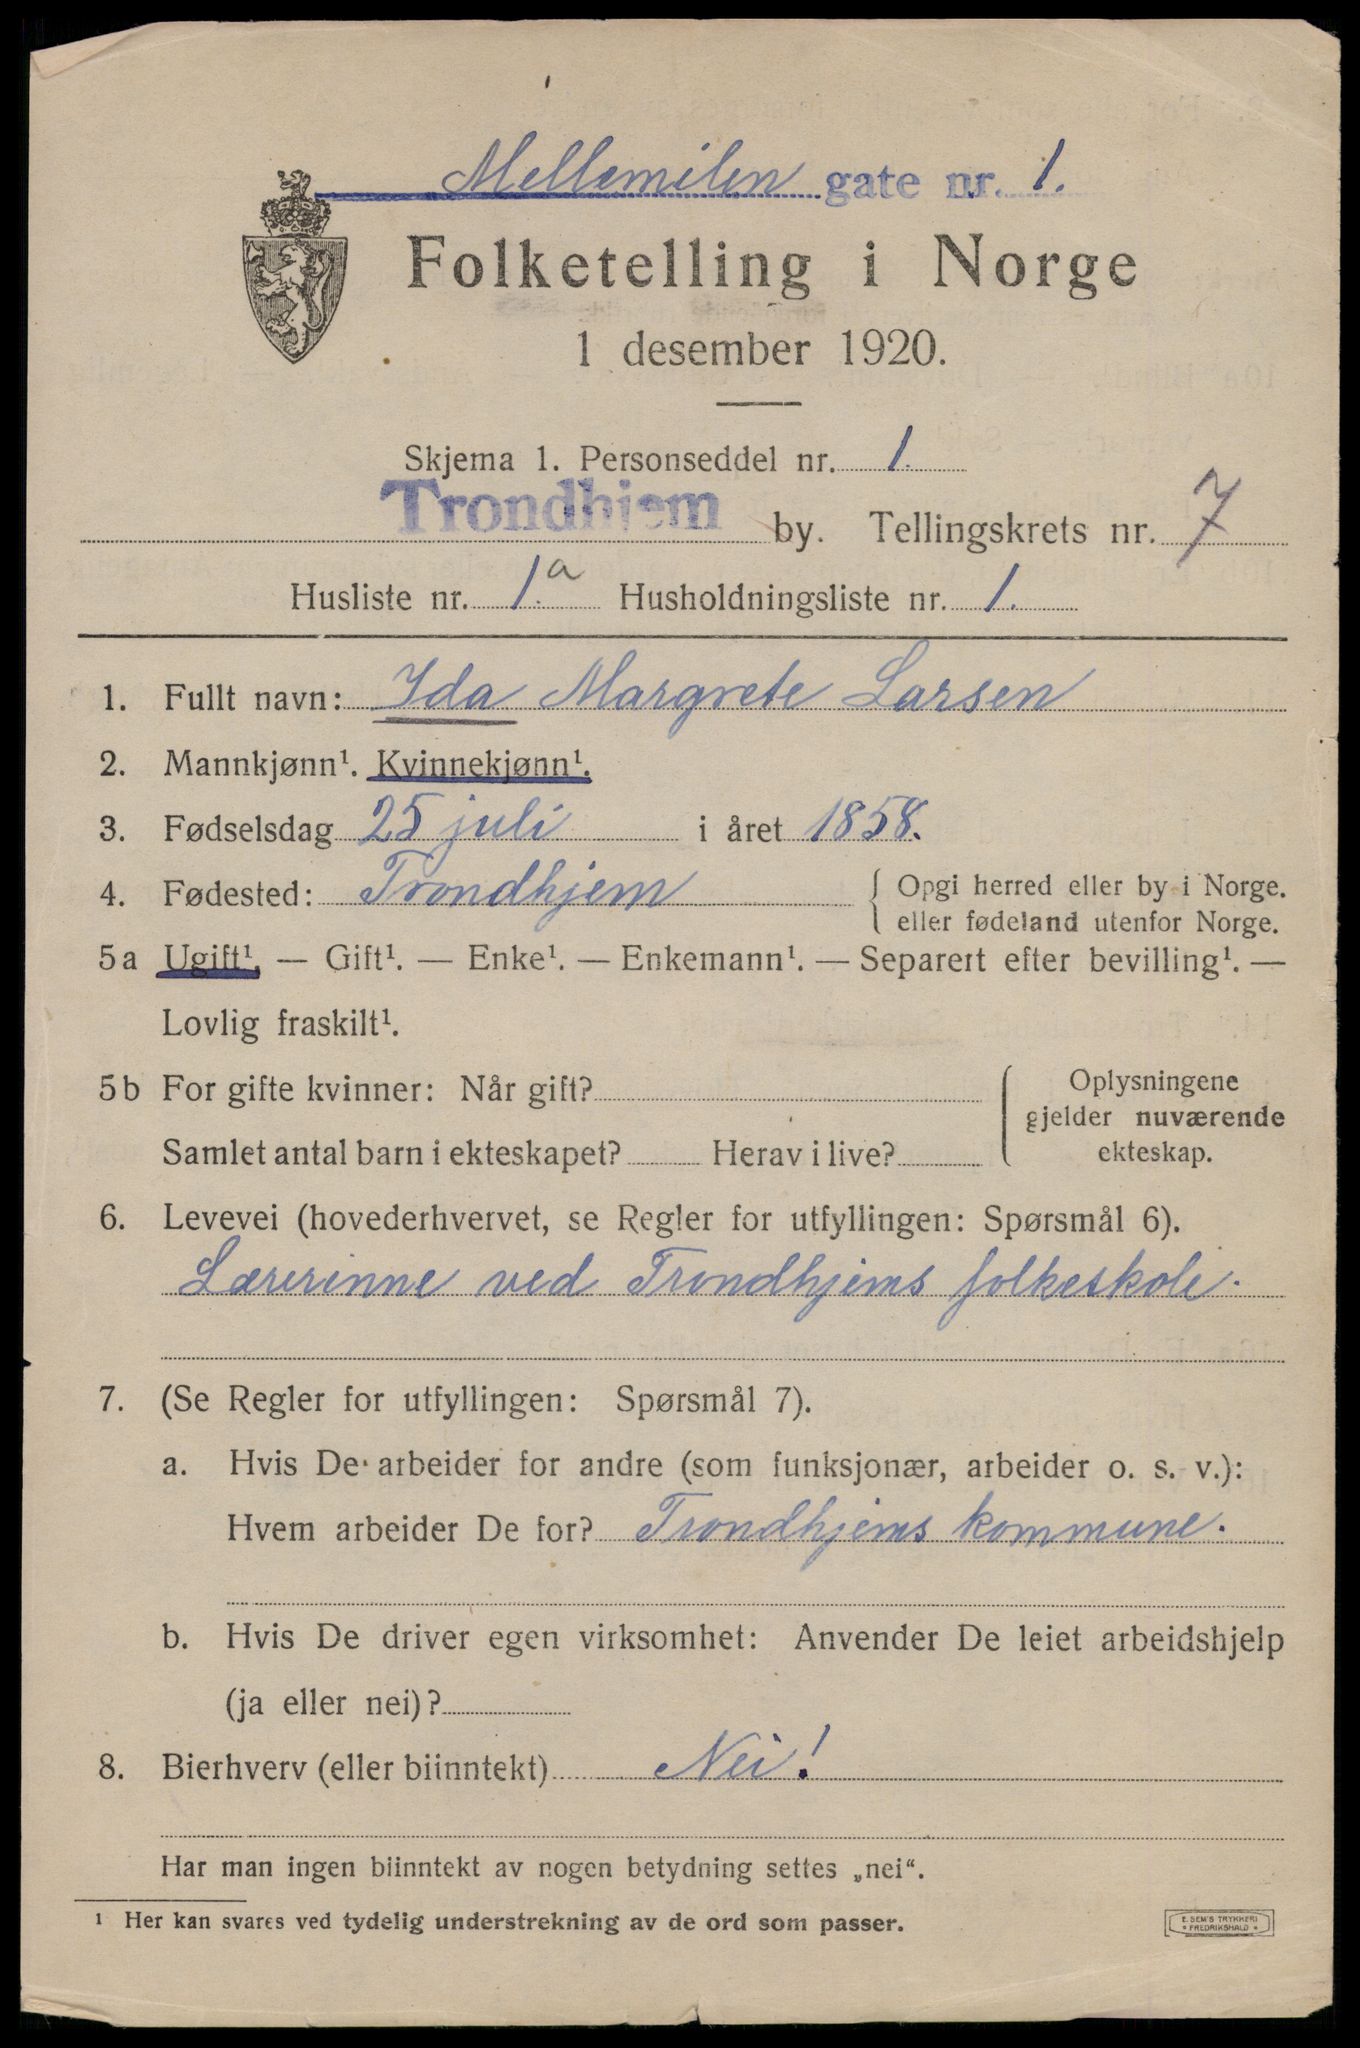 Mellemilen gate nr. 1.
Folketelling i Norge
1 desember 1920.
Skjema 1. Personseddel nr. 1.
Trondhjem by. Tellingskrets nr. 7
Husliste nr. 1.a Husholdningsliste nr. 1.
1. Fullt navn: Ida Margrete Larsen
2. Mannkjønn¹. Kvinnekjønn¹.
3. Fødselsdag 25 juli i året 1858.
4. Fødested: Trondhjem { Opgi herred eller by i Norge.
eller fødeland utenfor Norge.
5a Ugift¹. — Gift¹. — Enke¹. — Enkemann¹. — Separert efter bevilling¹. —
Lovlig fraskilt¹.
5b For gifte kvinner: Når gift?
Samlet antal barn i ekteskapet? Herav i live?
Oplysningene
gjelder nuværende
ekteskap.
6. Levevei (hovederhvervet, se Regler for utfyllingen: Spørsmål 6).
Lærerinne ved Trondhjems folkeskole.
7. (Se Regler for utfyllingen: Spørsmål 7).
a. Hvis De arbeider for andre (som funksjonær, arbeider o. s. v.):
Hvem arbeider De for? Trondhjems kommune.
b. Hvis De driver egen virksomhet: Anvender De leiet arbeidshjelp
(ja eller nei)?
8. Bierhverv (eller biinntekt) Nei!
Har man ingen biinntekt av nogen betydning settes „nei“.
¹ Her kan svares ved tydelig understrekning av de ord som passer.
E. SEM'S TRYKKERI
* FREDRIKSHALD *